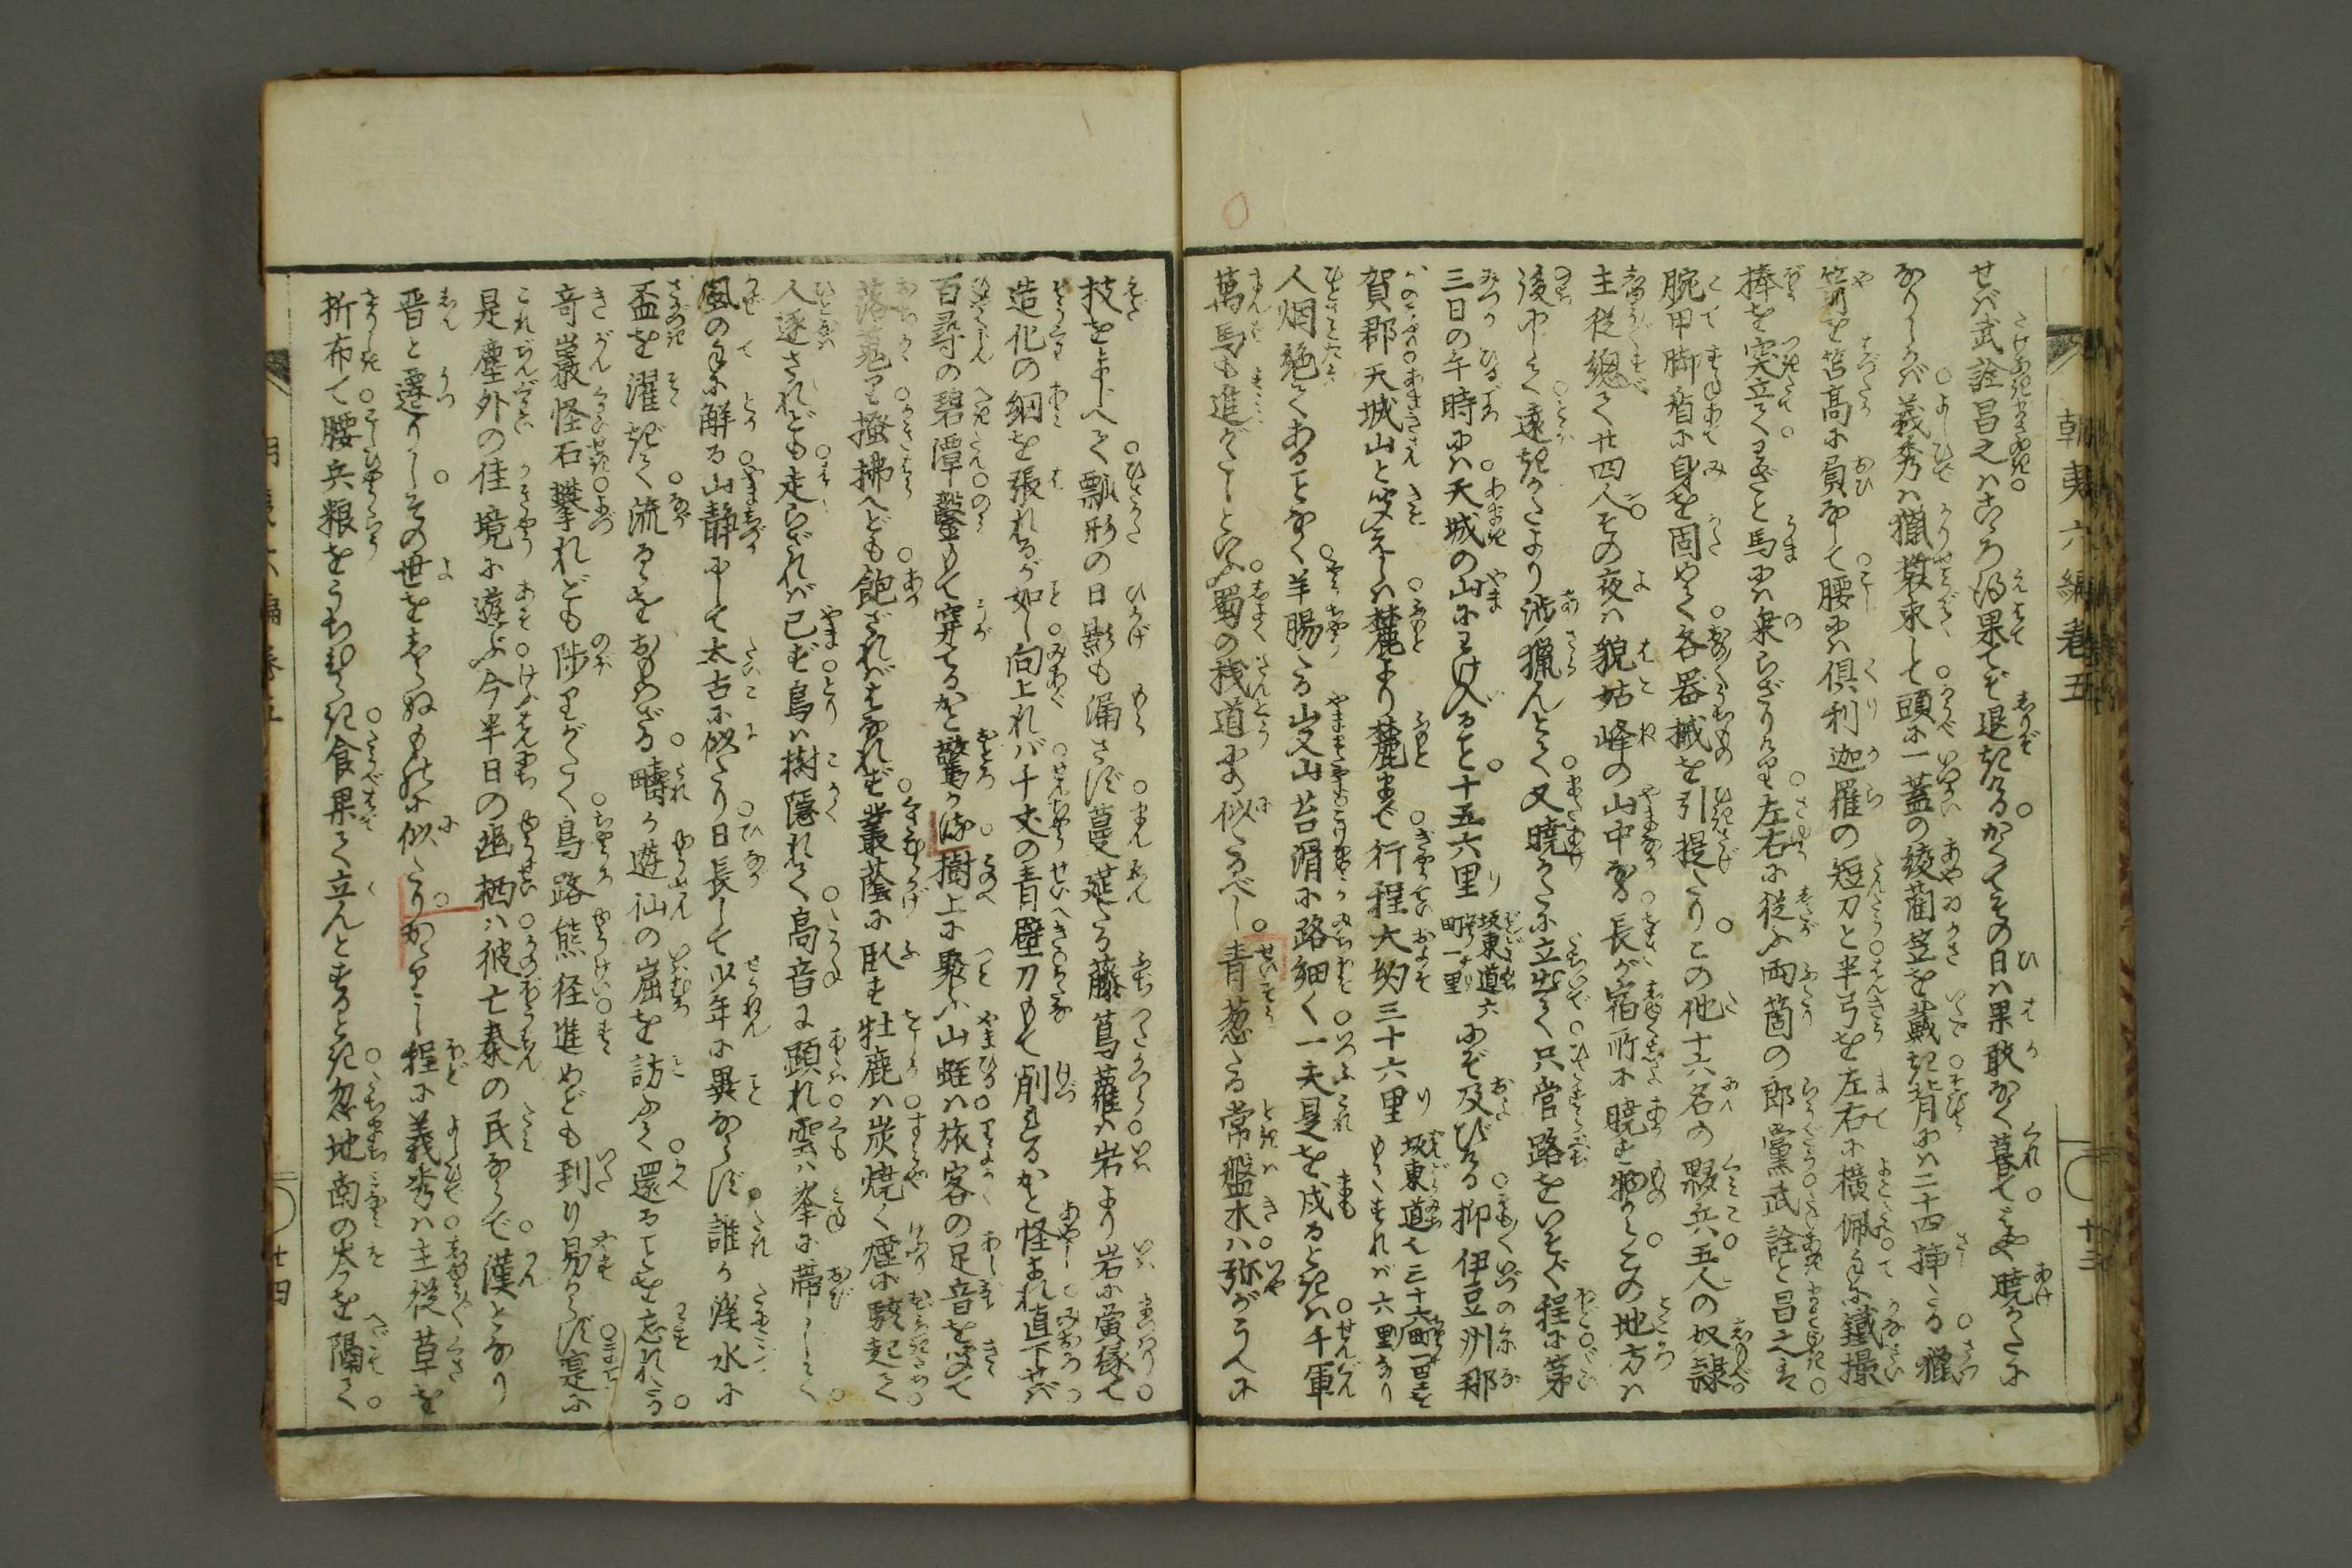 朝夷六編巻五
せバ武詮昌之ハこゝろ得果てぞ退きける。かくてその日ハ果敢なく暮て。はや暁がたに
なりしかバ義秀ハ獵装束して頭に一蓋の綾藺笠を戴き背にハ二十四挿たる獵
箭を筈高に負なして腰にハ倶利迦羅の短刀と半弓を左右に横佩手に鐵撮
棒を突立てわざと馬にハ乗らざりけり左右に従ふ両箇の郎黨武詮と昌之は
腕甲脚盾に身を固めて各器械を引提たりこの他十六名の夥兵五人の奴隷
主従總て廿四人その夜ハ貌姑峰の山中なる長が宿所に暁す物からこの地方ハ
後にして遠きかたより渉獵んとて又暁がたに立出て只管路をいそぐ程に第
三日の午時にハ天城の山にわけ入ること十五六里坂東道六町一里にぞ及びける抑伊豆州那
賀郡天城山と聞えしハ麓より麓まで行程大約三十六里坂東道也三十六町一里とすれバ六里なり
人烟絶てあることなく羊腸たる山又山苔滑に路細く一夫是を戍るときハ千軍
萬馬も進がたしといふ蜀の桟道にも似たるべし。青葱たる常盤木ハ弥がうへに
廿三
枝をまじへて瓢形の日影も漏さず蔓延たる藤蔦蘿ハ岩より岩に夤縁て
造化の網を張れるが如し向上れバ千丈の青壁刀もて削れるかと怪まれ直下せバ
百尋の碧潭鑿もて穿てるかと驚かる樹上に聚ふ山蛭ハ旅客の足音を聞て
落葉を掻拂へども飽ざれバはなれず叢蔭に臥す牡鹿ハ炭焼く煙に駭起て
人逐されども走らざれバ已ず鳥ハ樹隱れて高音に顕れ雲ハ峯に帯して
風の手に解る山静にして太古に似たり日長して少年に異ならず誰か渓水に
盃を濯ぎて流るゝをおもはざる疇か遊仙の崫を訪ふて還ることを忘れざる
竒巖怪石攀れども陟りがたく鳥路熊径進めども到り易からず寔に
是塵外の佳境に遊ぶ今半日の幽栖ハ彼亡秦の民ならで漢となり
晋と遷りしその世をもしらぬものに似たりかゝりし程に義秀ハ主従草を
折布て腰兵粮をうちひらき食果て立んとするとき忽地南の峯を隔て
廿四